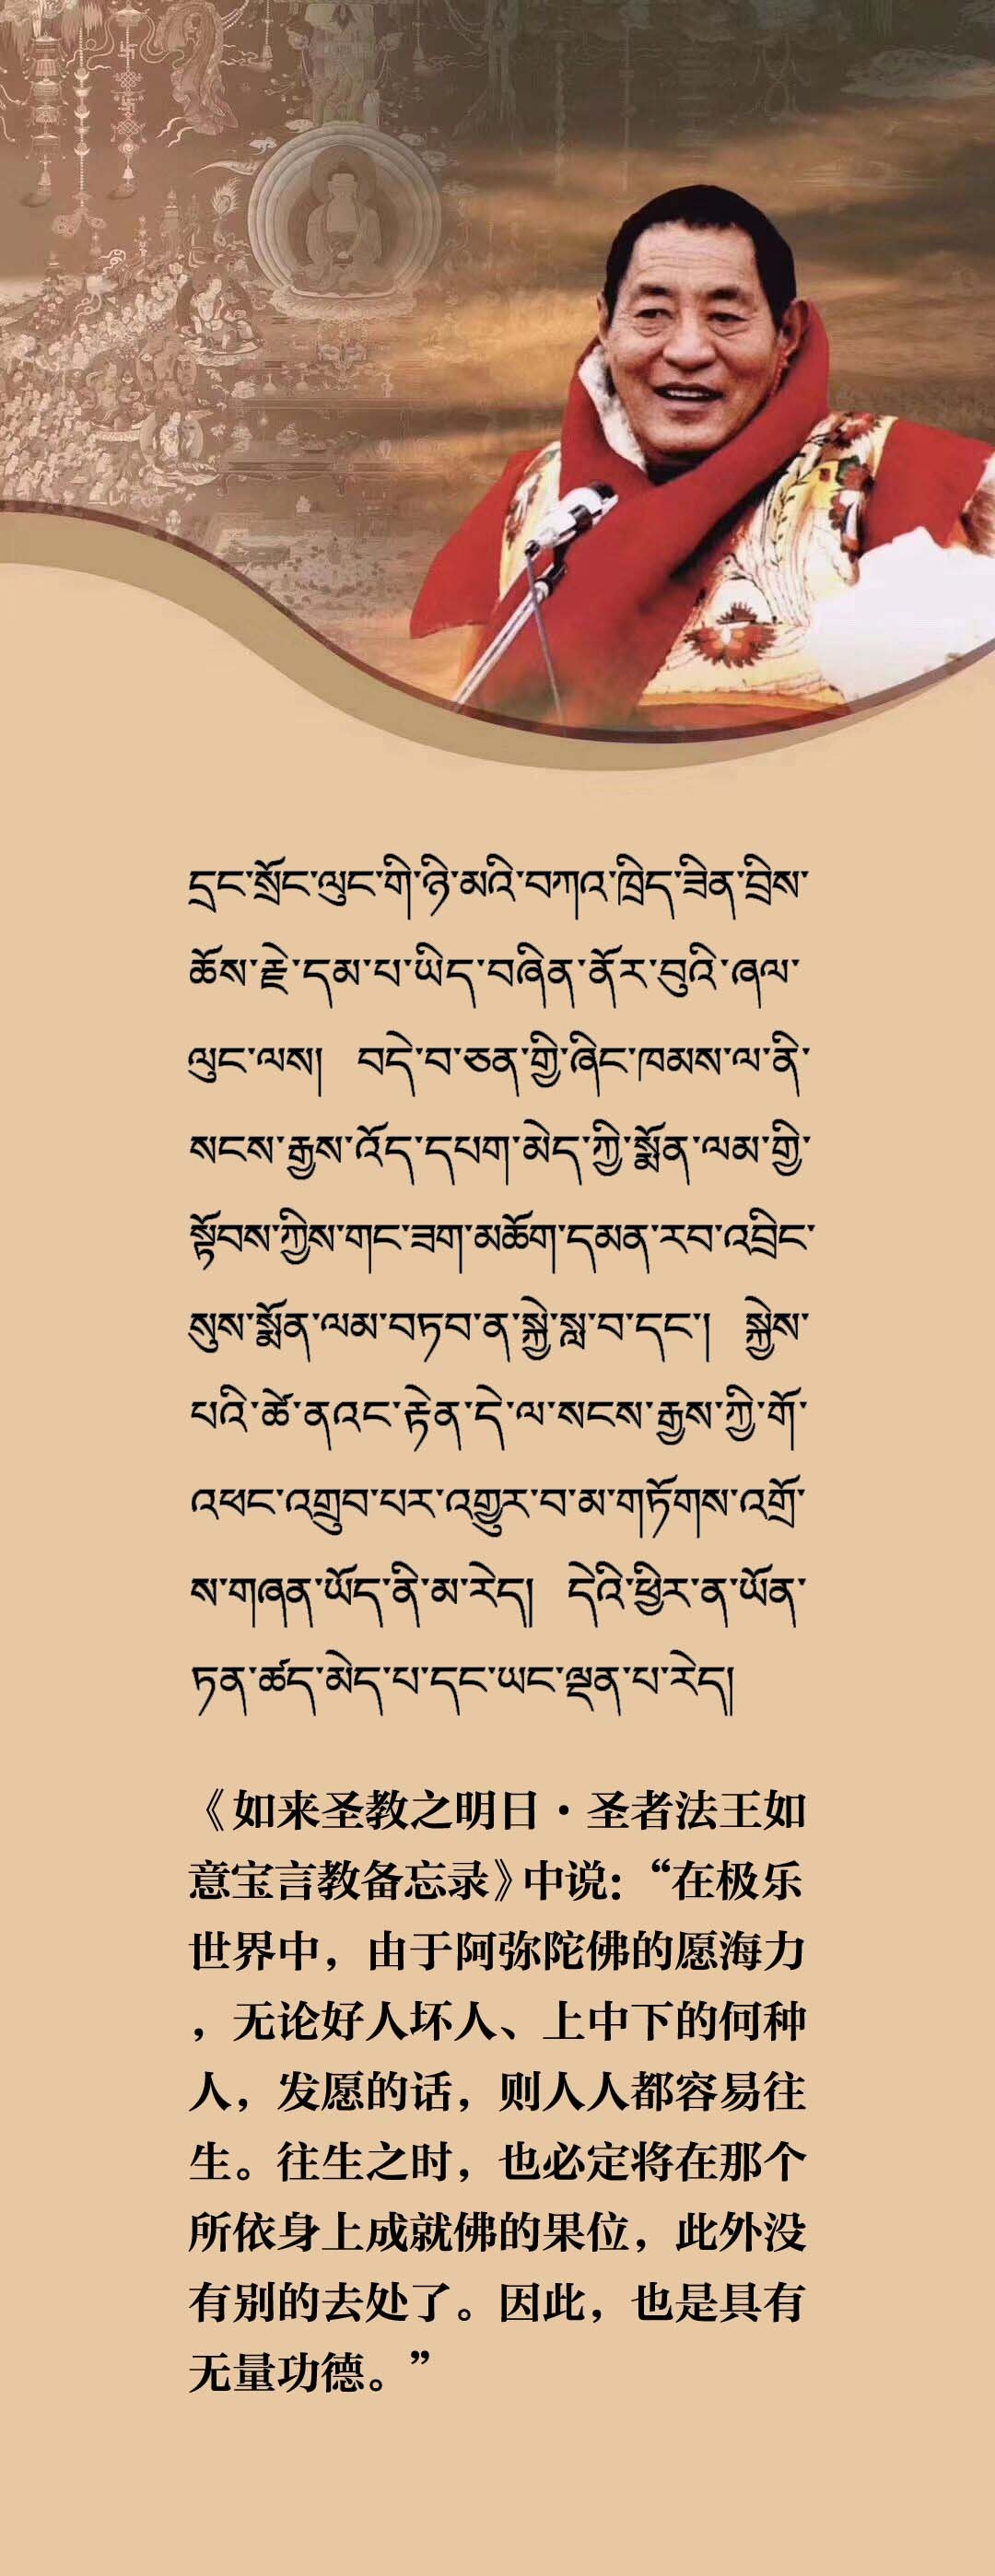 དྲང་སྲོང་ལུང་གི་ཉི་མའི་བཀའ་ཁྲིད་ཟིན་བྲིས་
ཆོས་རྗེ་དམ་པ་ཡིད་བཞིན་ནོར་བུའི་ཞལ་
ལུང་ལས། བདེ་བ་ཅན་གྱི་ཞིང་ཁམས་ལ་ནི་
སངས་རྒྱས་འོད་དཔག་མེད་ཀྱི་སྨོན་ལམ་གྱི་
སྟོབས་ཀྱིས་གང་ཟག་མཆོག་དམན་རབ་འབྲིང་
སུས་སྨོན་ལམ་བཏབ་ན་སྐྱེ་སླ་བ་དང་། སྐྱེས་
པའི་ཚེ་ནའང་རྟེན་དེ་ལ་སངས་རྒྱས་ཀྱི་གོ་
འཕང་འགྲུབ་པར་འགྱུར་བ་མ་གཏོགས་འགྲོ་
ས་གཞན་ཡོད་ནི་མ་རེད། དེའི་ཕྱིར་ན་ཡོན་
ཏན་ཚད་མེད་པ་དང་ཡང་ལྡན་པ་རེད།
《如来圣教之明日·圣者法王如
意宝言教备忘录》中说：“在极乐
世界中，由于阿弥陀佛的愿海力
，无论好人坏人、上中下的何种
人，发愿的话，则人人都容易往
生。往生之时，也必定将在那个
所依身上成就佛的果位，此外没
有别的去处了。因此，也是具有
无量功德。”